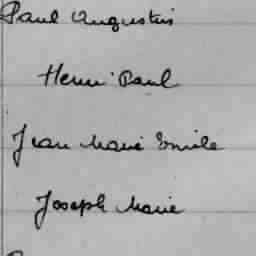 Paul Augustin
Henri Paul
Jean Marie Emile
Joseph Marie